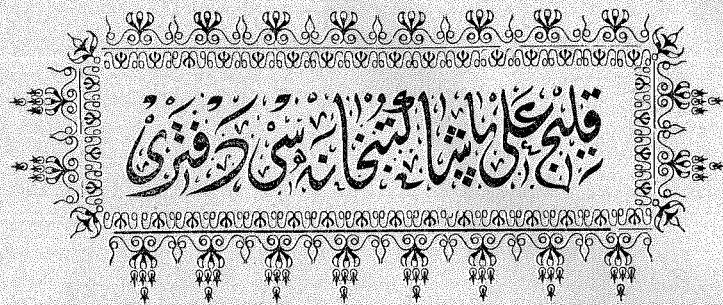 قلیج علی پاشا کتبخانه سی دفتری